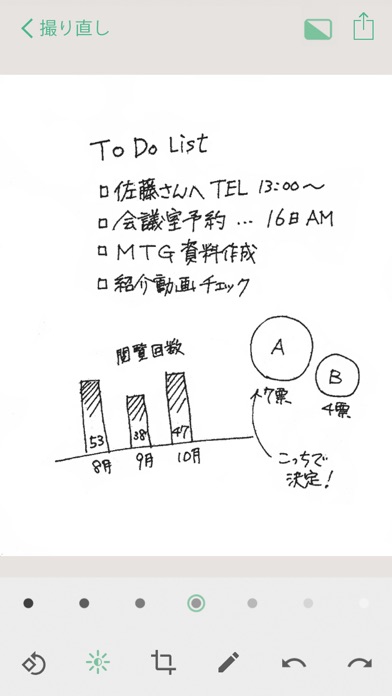 撮り直し
To Do List
□ 佐藤さんへ TEL 13:00〜
□ 会議室予約 … 16日 AM
□ MTG 資料作成
□ 紹介動画チェック
閲覧回数
53
38
47
8月
9月
10月
A
B
7票
4票
こっちで
決定!